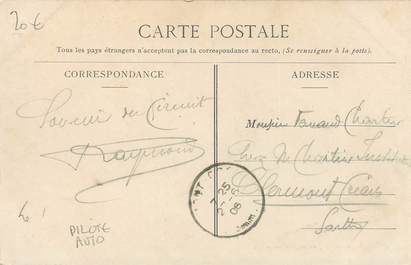 20€
CARTE POSTALE
Tous les pays étrangers n'acceptent pas la correspondance au recto, (Se renseigner à la poste).
CORRESPONDANCE
ADRESSE
Souvenir du Circuit
Raymond
Monsieur Fernand Chartier
Chez Mr Chartier
Clermont Créans
Sarthe
7-25
PILOTE
AUTO